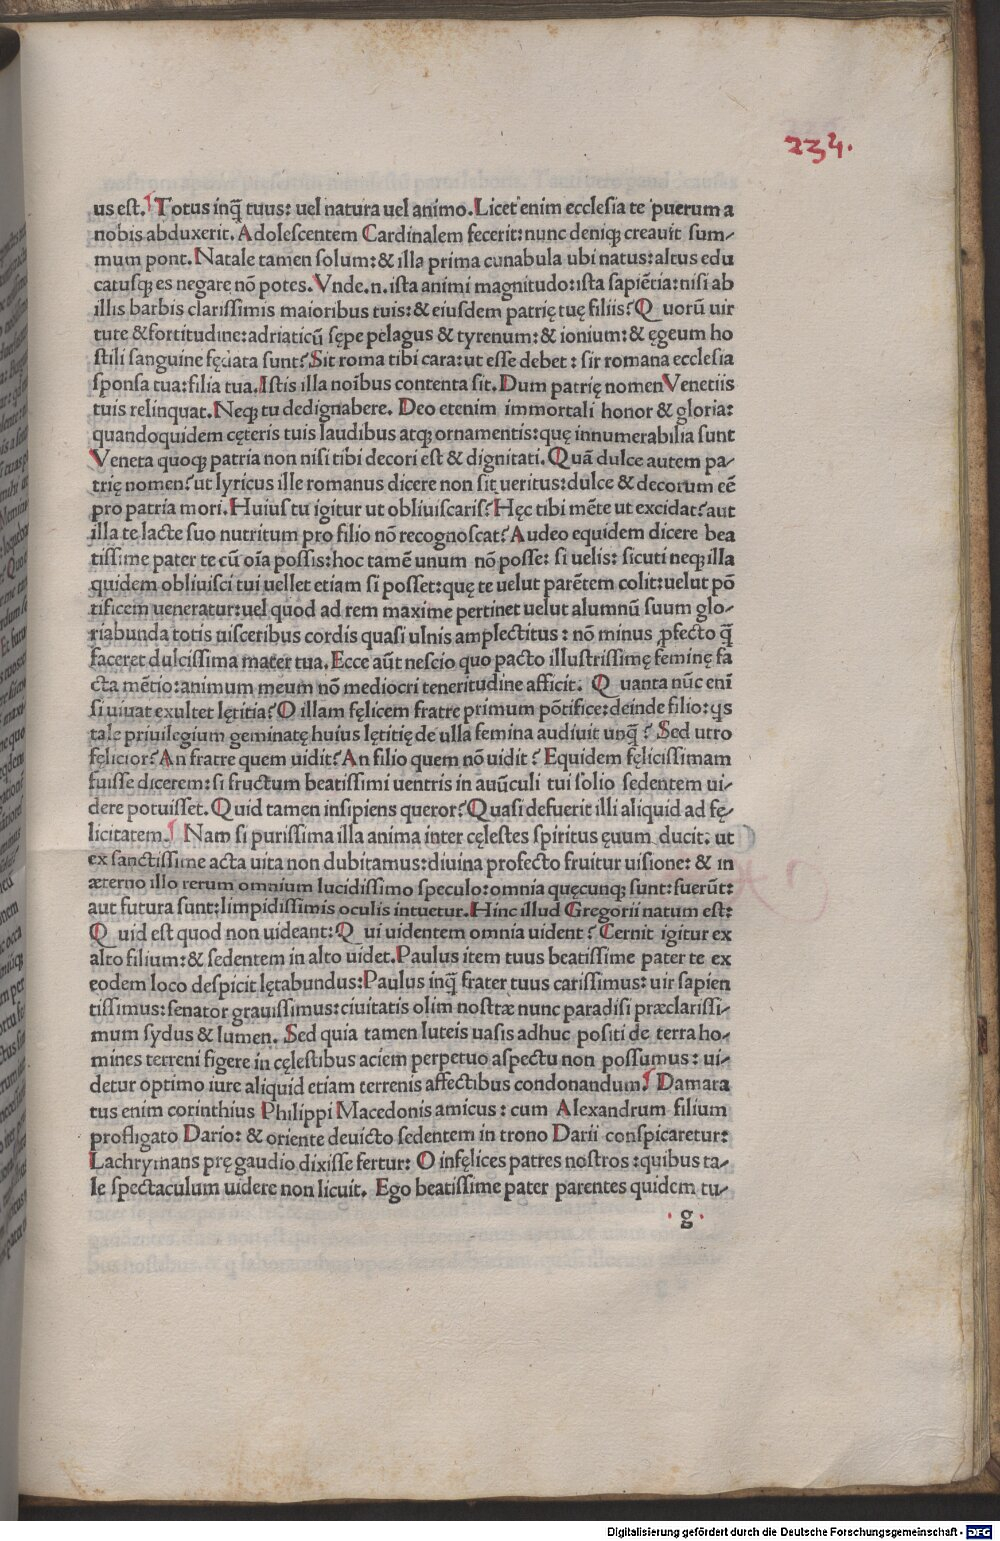 234.
us est. Totus inq̄ tuus: uel natura uel animo. Licet enim ecclesia te puerum a
nobis abduxerit. Adolescentem Cardinalem fecerit: nunc deniqȝ creauit sum-
mum pont. Natale tamen solum: & illa prima cunabula ubi natus: altus edu
catusqȝ es negare nō potes. Vnde .n. ista animi magnitudo: ista sapiētia: nisi ab
illis barbis clarissimis maioribus tuis: & eiusdem patrię tuę filiis? Quorū uir
tute & fortitudine: adriaticū sępe pelagus & tyrenum: & ionium: & ęgeum ho
stili sanguine fędata sunt? Sit roma tibi cara: ut esse debet: sit romana ecclesia
sponsa tua: filia tua. Istis illa noībus contenta sit. Dum patrię nomen Venetiis
tuis relinquat. Neqȝ tu dedignabere. Deo etenim immortali honor & gloria:
quandoquidem cęteris tuis laudibus atqȝ ornamentis: quę innumerabilia sunt
Veneta quoqȝ patria non nisi tibi decori est & dignitati. Quā dulce autem pa-
trię nomen? ut lyricus ille romanus dicere non sit ueritus: dulce & decorum eē
pro patria mori. Huius tu igitur ut obliuiscaris? Hęc tibi mēte ut excidat? aut
illa te lacte suo nutritum pro filio nō recognoscat? Audeo equidem dicere bea
tissime pater te cū oīa possis: hoc tamē unum nō posse: si uelis: sicuti neqȝ illa
quidem obliuisci tui uellet etiam si posset: quę te uelut parētem colit: uelut pō
tificem ueneratur: uel quod ad rem maxime pertinet uelut alumnū suum glo-
riabunda totis uisceribus cordis quasi ulnis amplectitus: nō minus ꝓfecto q̄
faceret dulcissima mater tua. Ecce aūt nescio quo pacto illustrissimę feminę fa
cta mētio: animum meum nō mediocri teneritudine afficit. Quanta nūc enī
si uiuat exultet lętitia? O illam fęlicem fratre primum pōtifice: deinde filio: qs
tale priuilegium geminatę huius lętitię de ulla femina audiuit unq̄? Sed utro
fęlicior? An fratre quem uidit? An filio quem nō uidit? Equidem fęlicissimam
fuisse dicerem: si fructum beatissimi uentris in auūculi tui solio sedentem ui-
dere potuisset. Quid tamen insipiens queror? Quasi defuerit illi aliquid ad fę-
licitatem. Nam si purissima illa anima inter cęlestes spiritus ęuum ducit. ut
ex sanctissime acta uita non dubitamus: diuina profecto fruitur uisione: & in
æterno illo rerum omnium lucidissimo speculo: omnia quęcunqȝ sunt: fuerūt:
aut futura sunt: limpidissimis oculis intuetur. Hinc illud Gregorii natum est:
Quid est quod non uideant: Qui uidentem omnia uident? Cernit igitur ex
alto filium: & sedentem in alto uidet. Paulus item tuus beatissime pater te ex
eodem loco despicit lętabundus: Paulus inq̄ frater tuus carissimus: uir sapien
tissimus: senator grauissimus: ciuitatis olim nostræ nunc paradisi præclarissi-
mum sydus & lumen. Sed quia tamen luteis uasis adhuc positi de terra ho-
mines terreni figere in cęlestibus aciem perpetuo aspectu non possumus: ui-
detur optimo iure aliquid etiam terrenis affectibus condonandum. Damara
tus enim corinthius Philippi Macedonis amicus: cum Alexandrum filium
profligato Dario: & oriente deuicto sedentem in trono Darii conspicaretur:
Lachrymans prę gaudio dixisse fertur: O infęlices patres nostros: quibus ta-
le spectaculum uidere non licuit. Ego beatissime pater parentes quidem tu-
g
Digitalisierung gefördert durch die Deutsche Forschungsgemeinschaft - DFG